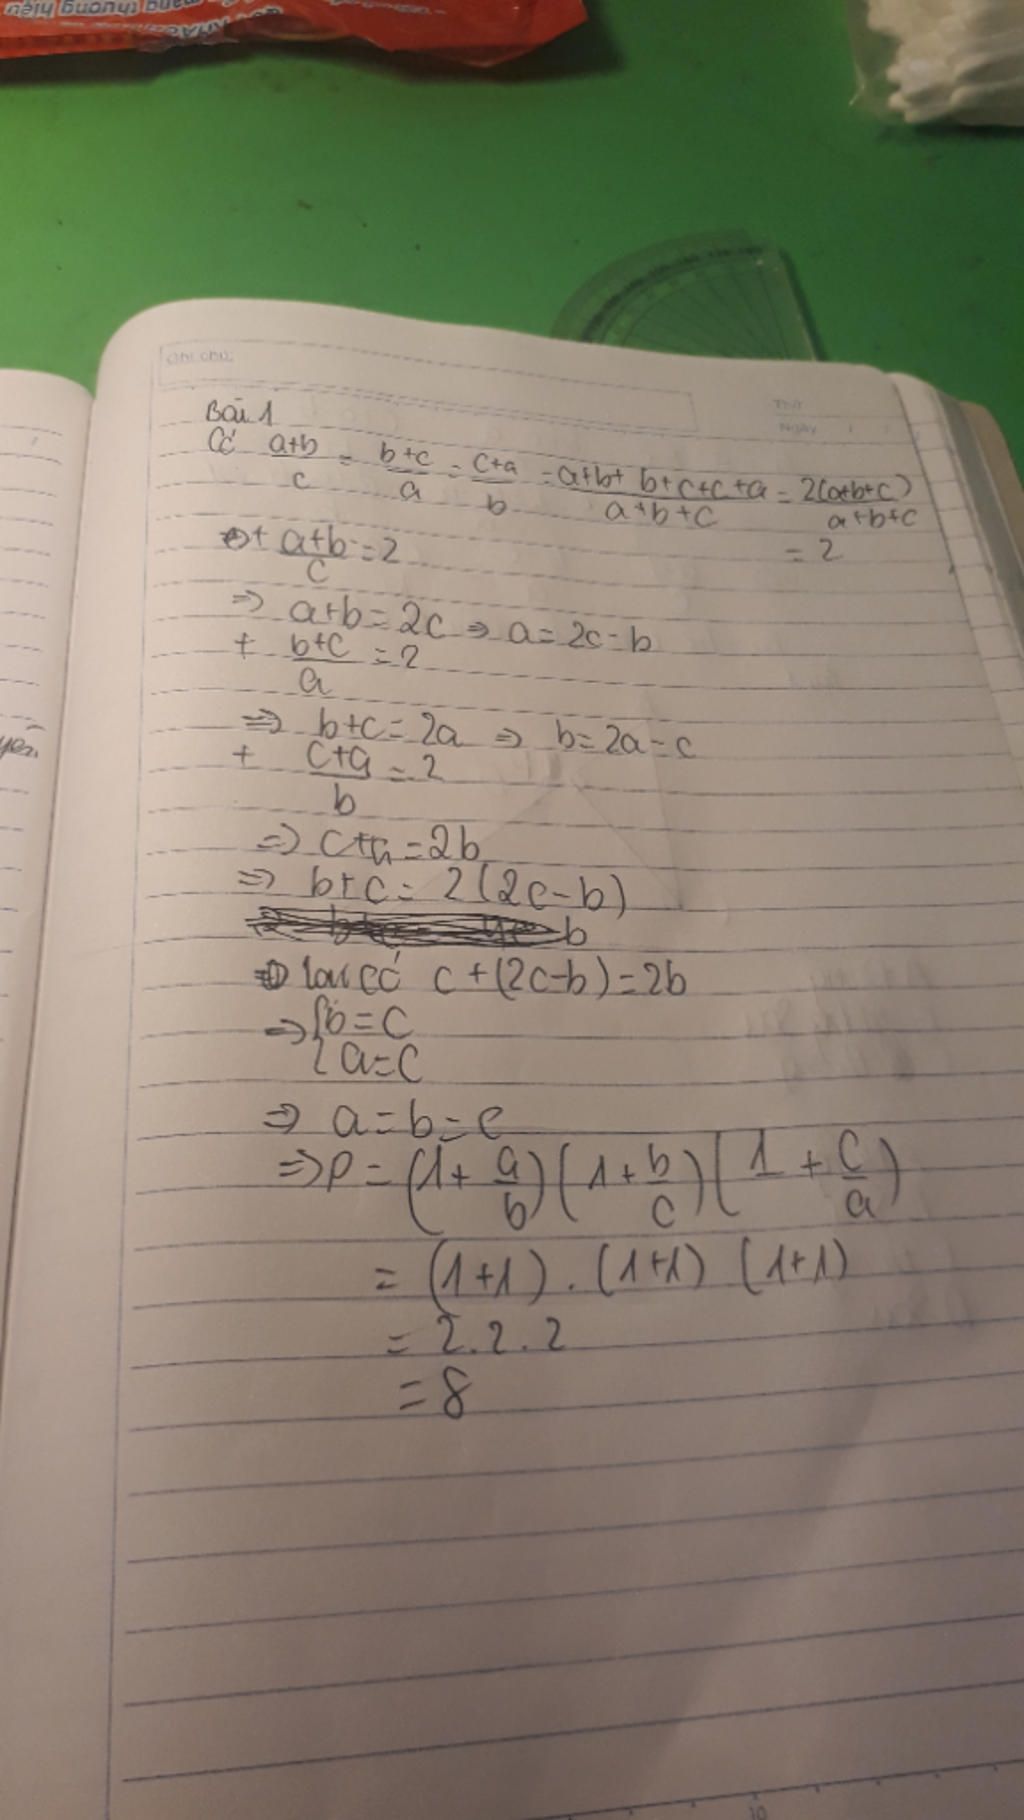 Ghi chú:
Thứ
Ngày
Bài 1
Có a+b/c = b+c/a = c+a/b = a+b+b+c+c+a/a+b+c = 2(a+b+c)/a+b+c
= 2
+ a+b/c = 2
⇒ a+b = 2c ⇒ a = 2c - b
+ b+c/a = 2
⇒ b+c = 2a ⇒ b = 2a - c
+ c+a/b = 2
⇒ c+a = 2b
⇒ b+c = 2(2c-b)
b
lại có c + (2c-b) = 2b
⇒ { b = c
a = c
⇒ a = b = c
⇒ P = (1 + a/b)(1 + b/c)(1 + c/a)
= (1+1) . (1+1) (1+1)
= 2.2.2
= 8
10